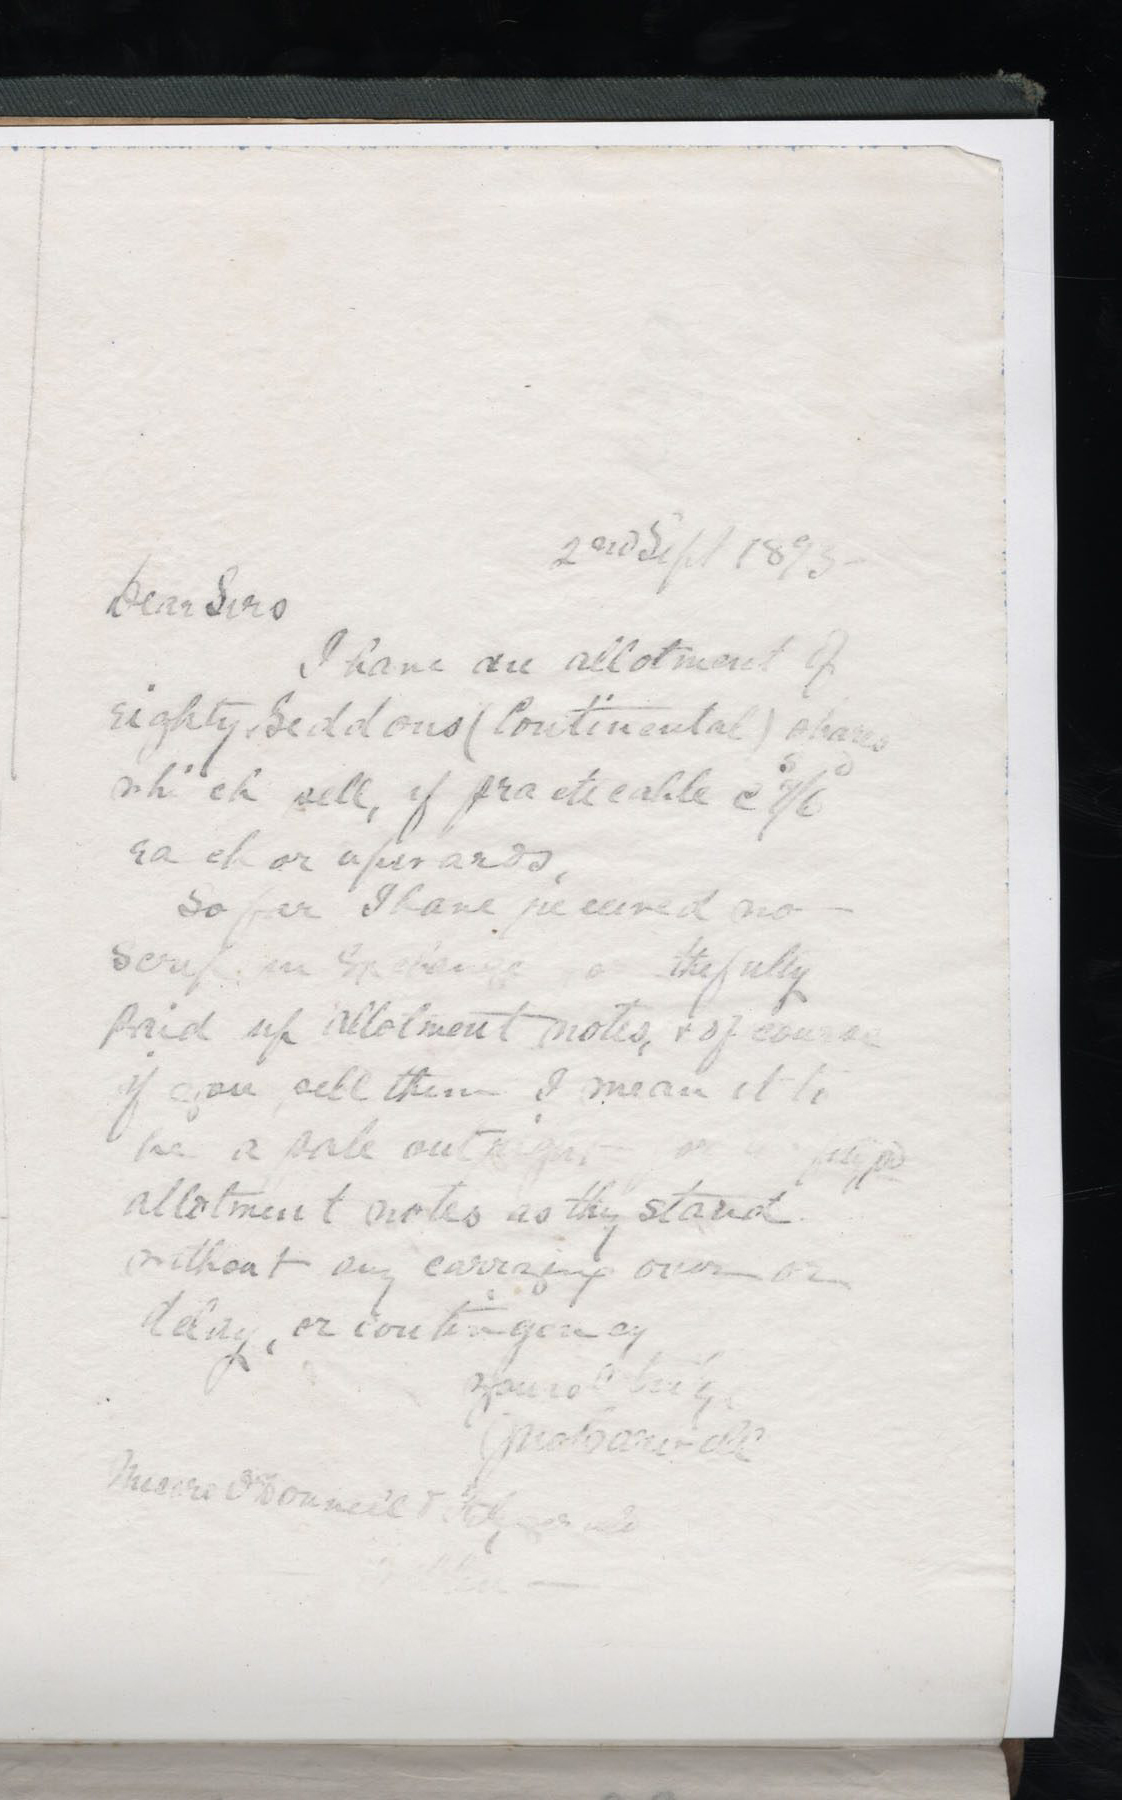 2nd Sept 1895
Dear Sirs
I have an allotment of
eighty Seddons (Continental) shares
which sell, if practicable @
each or upwards,
So far I have received no
scrip in exchange the fully
paid up allotment notes, & of course
if you sell them I mean it to
be a sale outright
allotment notes as they stand
without any carrying over or
delay, or contingency
Messrs O'Donnell & Fitzgerald
Dublin